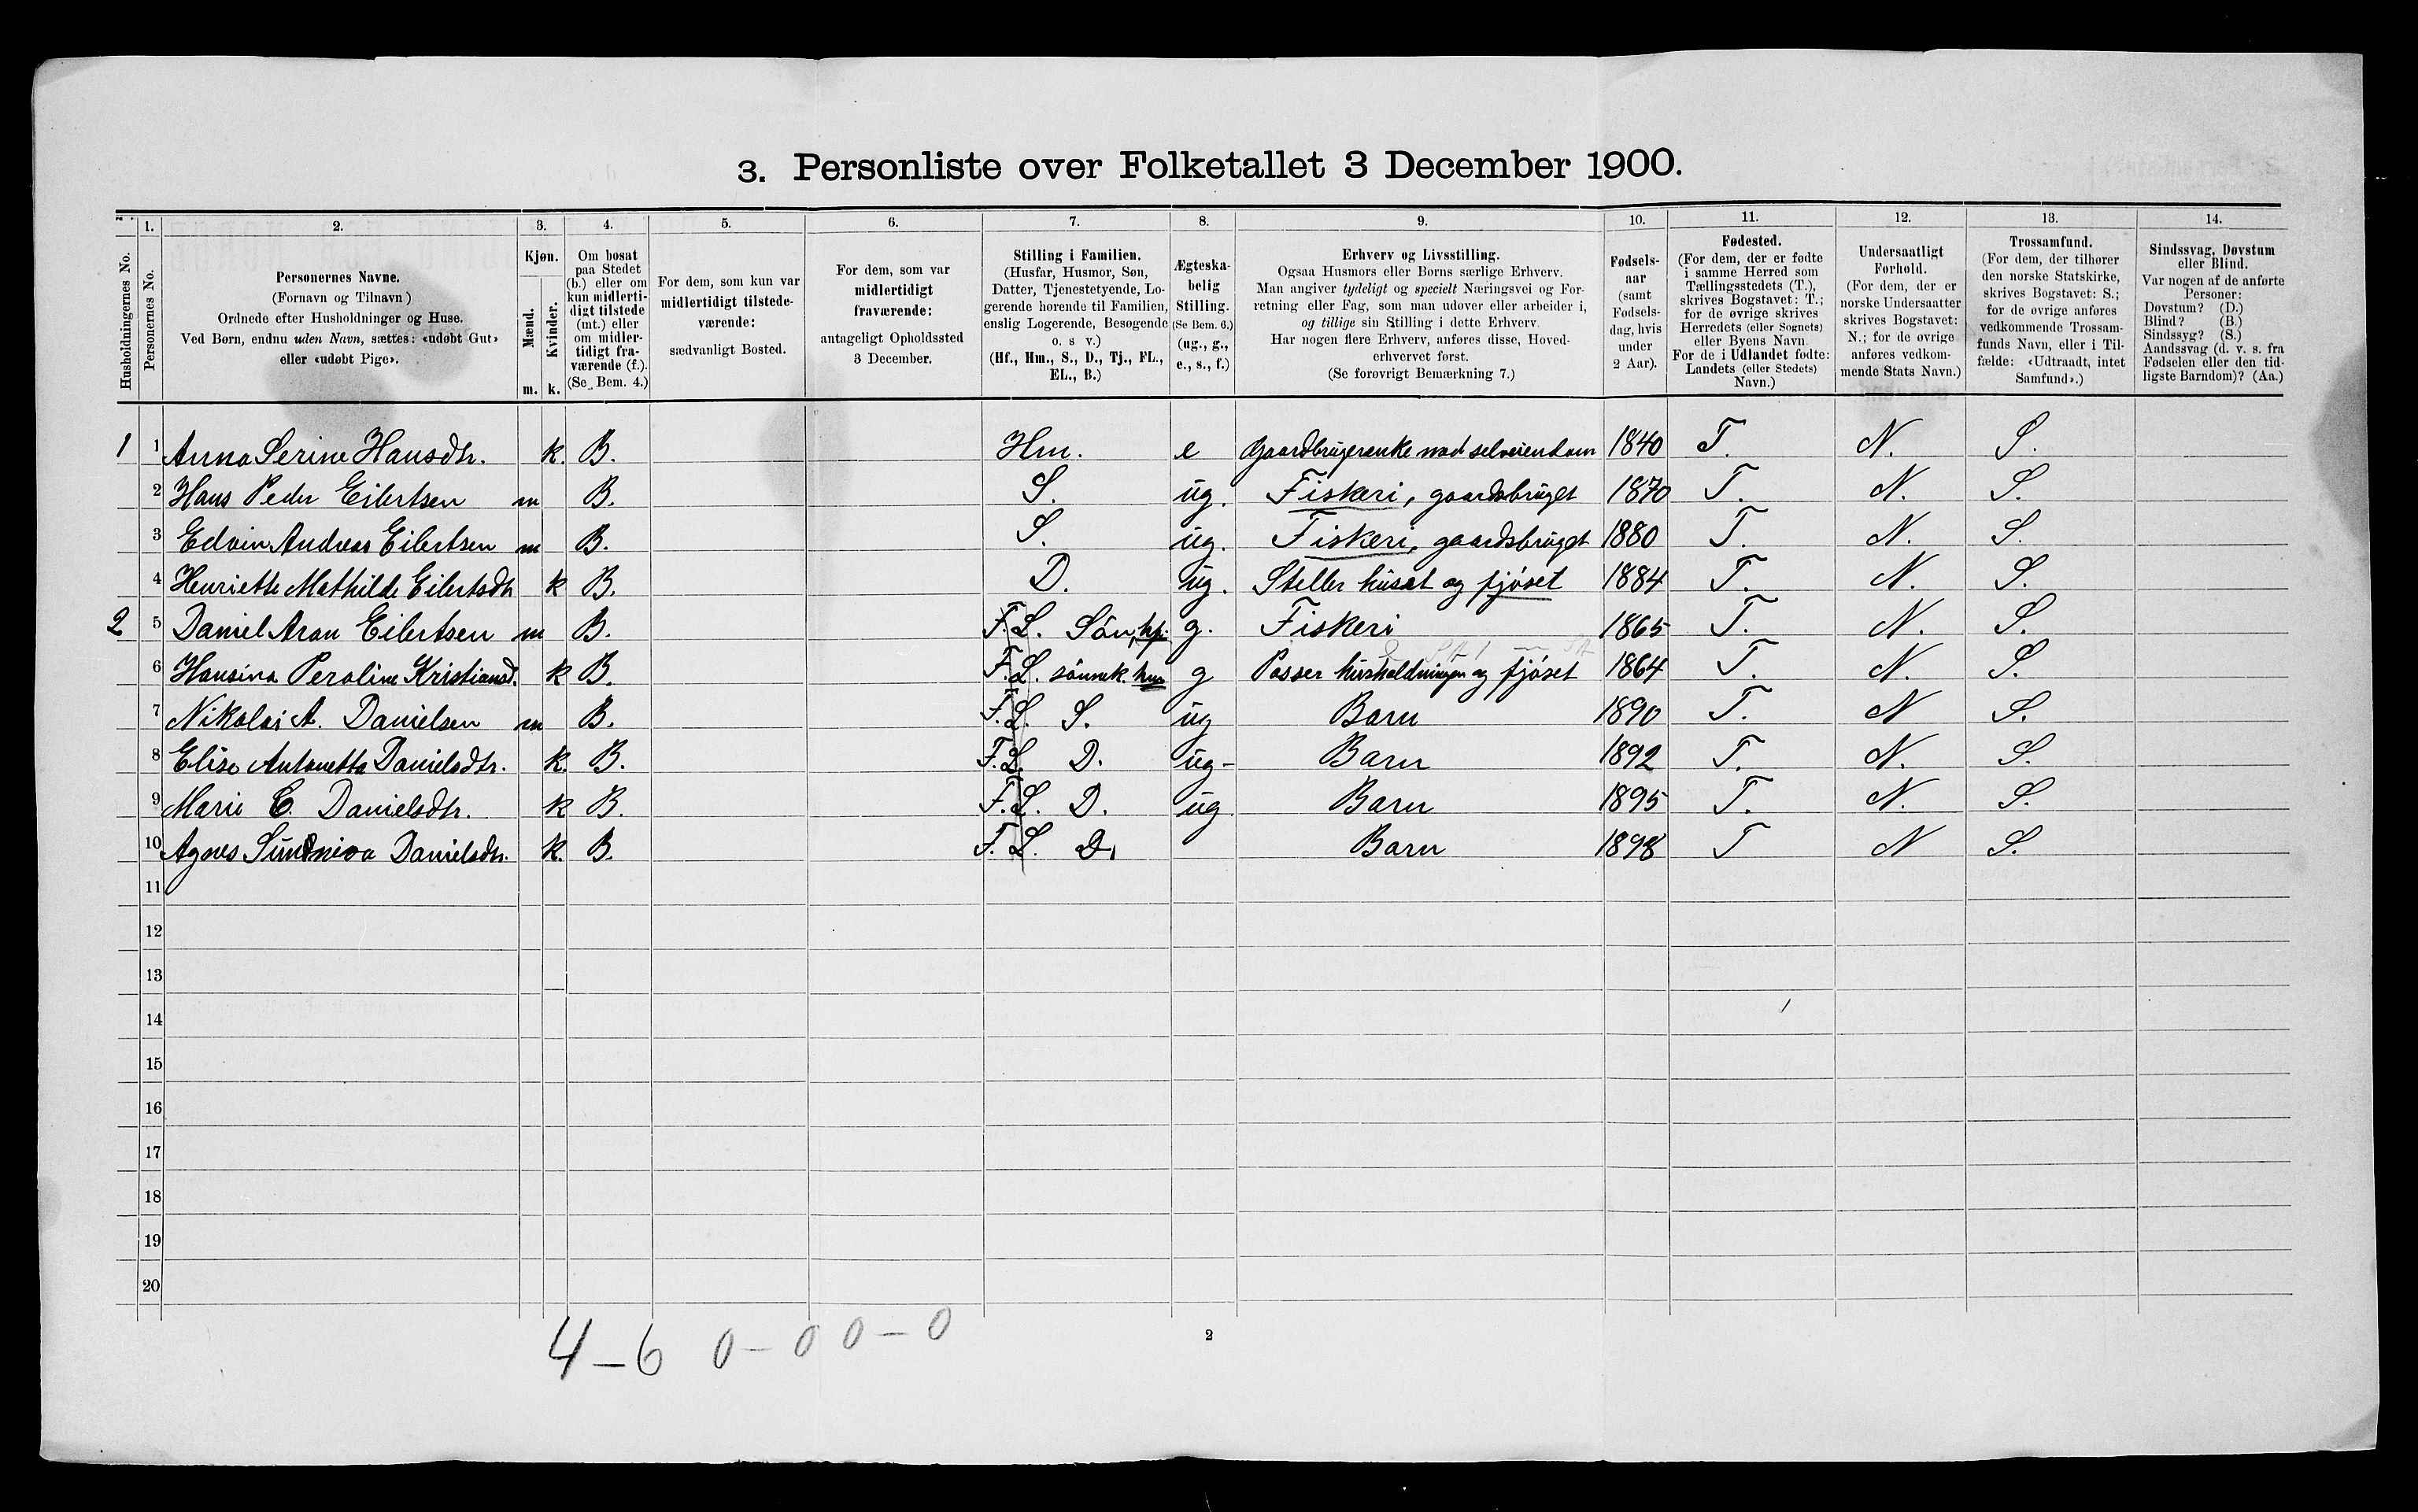 3. Personliste over Folketallet 3 December 1900.
1. 2. 3. 4. 5. 6. 7. 8. 9. 10. 11. 12. 13. 14.
Husholdningernes No.
Personernes No.
Personernes Navne.
(Fornavn og Tilnavn)
Ordnede efter Husholdninger og Huse.
Ved Børn, endnu uden Navn, sættes: «udøbt Gut»
eller «udøbt Pige».
Kjøn.
Mænd.
Kvinder.
m. k.
Om bosat
paa Stedet
(b.) eller om
kun midlerti-
digt tilstede
(mt.) eller
om midler-
tidigt fra-
værende (f.).
(Se Bem. 4.)
For dem, som kun var
midlertidigt tilstede-
værende:
sædvanligt Bosted.
For dem, som var
midlertidigt
fraværende:
antageligt Opholdssted
3 December.
Stilling i Familien.
(Husfar, Husmor, Søn,
Datter, Tjenestetyende, Lo-
gerende hørende til Familien,
enslig Logerende, Besøgende
o. s v.)
(Hf., Hm., S., D., Tj., FL.,
EL., B.)
Ægteska-
belig
Stilling.
(Se Bem. 6.)
(ug., g.,
e., s., f.)
Erhverv og Livsstilling.
Ogsaa Husmors eller Børns særlige Erhverv.
Man angiver tydeligt og specielt Næringsvei og For-
retning eller Fag, som man udøver eller arbeider i,
og tillige sin Stilling i dette Erhverv.
Har nogen flere Erhverv, anføres disse, Hoved-
erhvervet først.
(Se forøvrigt Bemærkning 7.)
Fødsels-
aar
(samt
Fødsels-
dag, hvis
under
2 Aar).
Fødested.
(For dem, der er fødte
i samme Herred som
Tællingsstedets (T.),
skrives Bogstavet: T.;
for de øvrige skrives
Herredets (eller Sognets)
eller Byens Navn.
For de i Udlandet fødte:
Landets (eller Stedets)
Navn.)
Undersaatligt
Forhold.
(For dem, der er
norske Undersaatter
skrives Bogstavet:
N.; for de øvrige
anføres vedkom-
mende Stats Navn.)
Trossamfund.
(For dem, der tilhører
den norske Statskirke,
skrives Bogstavet: S.;
for de øvrige anføres
vedkommende Trossam-
funds Navn, eller i Til-
fælde: «Udtraadt, intet
Samfund».)
Sindssvag, Døvstum
eller Blind.
Var nogen af de anførte
Personer:
Døvstum? (D.)
Blind? (B.)
Sindssyg? (S.)
Aandssvag (d. v. s. fra
Fødselen eller den tid-
ligste Barndom)? (Aa.)
1 1 Anna Serine Hansdtr. k. B. Hm. e Gaardbrugerenke med selveiendom 1840 T. N. S.
2 Hans Peder Eilertsen m B. S. ug. Fiskeri, gaardsbruget 1870 T. N. S.
3 Edvin Andreas Eilertsen m B. S. ug. Fiskeri, gaardsbruget 1880 T. N. S.
4 Henriette Mathilde Eilertsdtr k B. D. ug. Steller huset og fjöset 1884 T. N. S.
2 5 Daniel Aron Eilertsen m B. F.L. Sön, hf. g. Fiskeri 1865 T. N. S.
6 Hansina Peroline Kristiansd. k B. F.L. sönnek. hm g Passer husholdningen og fjöset 1864 T. N. S.
7 Nikolai A. Danielsen m B. F.L. S. ug Barn 1890 T. N S.
8 Elise Antonetta Danielsdtr. k. B. F.L. D. ug- Barn 1892 T. N. S.
9 Marie C. Danielsdtr. k B. F.L. D. ug Barn 1895 T. N. S.
10 Agnes Sundniva Danielsdtr. k. B. F.L. D. Barn 1898 T N S.
11
12
13
14
15
16
17
18
19
20
4-6 0-0 0-0
2